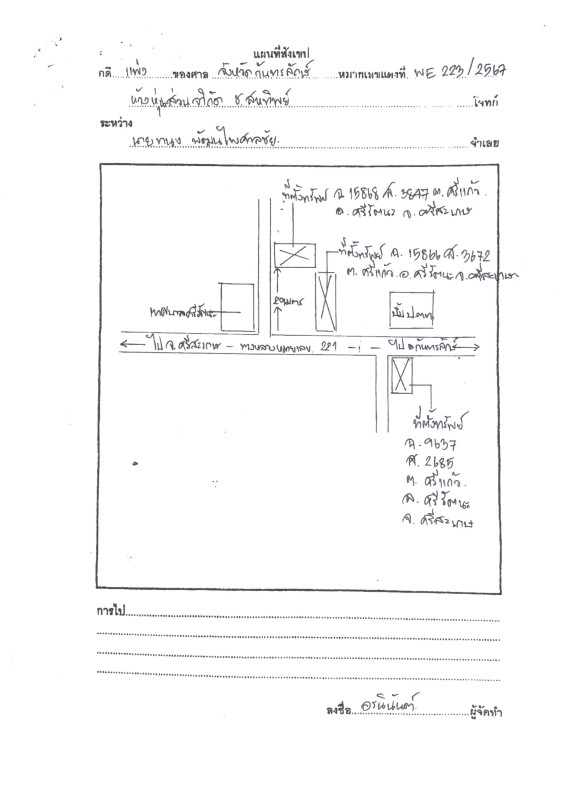 แผนที่สังเขป
คดี แพ่ง ของศาล จังหวัดกันทรลักษ์ หมายเลขแดงที่ ผบE 223/2567
ห้างหุ้นส่วนจำกัด ช.สหทิพย์ โจทก์
ระหว่าง
นายทนง พัฒนไพศาลชัย จำเลย
ที่ตั้งทรัพย์ ฉ. 15868 ส. 3847 ต. ศรีแก้ว
อ. ศรีรัตนะ จ. ศรีสะเกษ
ที่ตั้งทรัพย์ ฉ. 15866 ส. 3672
ต. ศรีแก้ว อ. ศรีรัตนะ จ. ศรีสะเกษ
20เมตร
ปั๊ม ปตท
ไป จ. ศรีสะเกษ – ทางหลวงหมายเลข 221 – ไป อ.กันทรลักษ์
ที่ตั้งทรัพย์
ฉ. 9637
ส. 2685
ต. ศรีแก้ว
อ. ศรีรัตนะ
จ. ศรีสะเกษ
การไป
ลงชื่อ ผู้จัดทำ